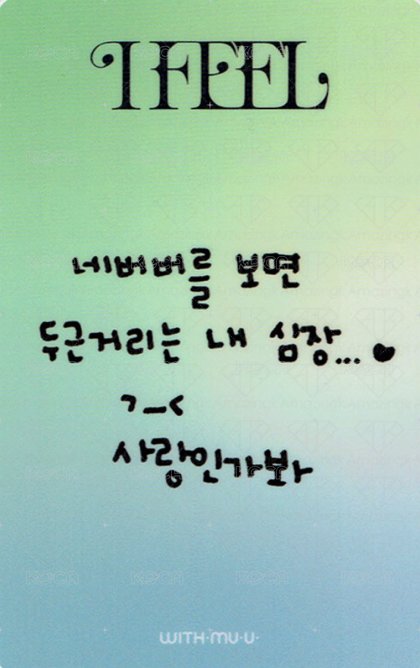 I FEEL
네버버를 보면
두근거리는 내 심장...♥
ㄱ_<
사랑인가봐
WITH·MU·U·